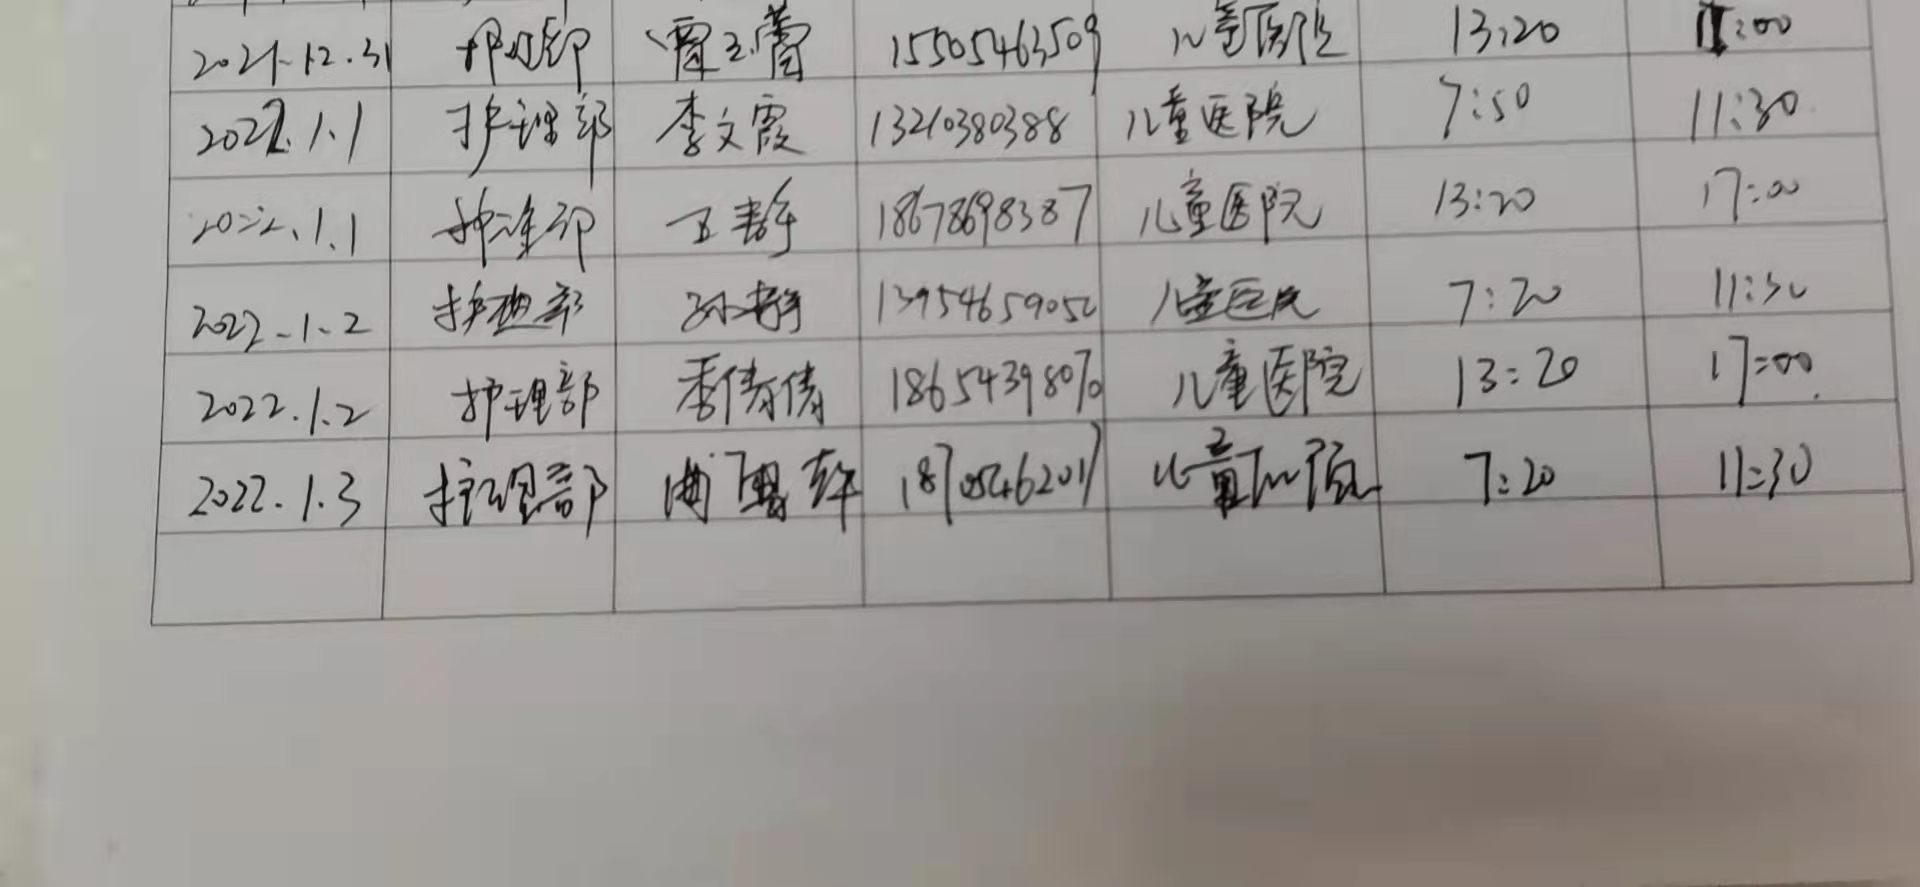 2021.12.31 护理部 15505463509 儿童医院 13:20 :00
2022.1.1 护理部 李文霞 13210380388 儿童医院 7:50 11:30
2022.1.1 护理部 王静 18678698387 儿童医院 13:20 17:00
2022.1.2 护理部 孙静 13954659052 儿童医院 7:20 11:30
2022.1.2 护理部 季倩倩 18654398070 儿童医院 13:20 17:00
2022.1.3 护理部 18705462017 儿童医院 7:20 11:30